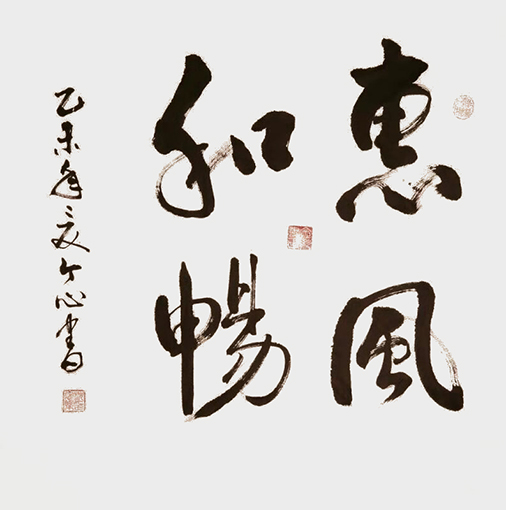 惠風
和暢
乙未年
心書